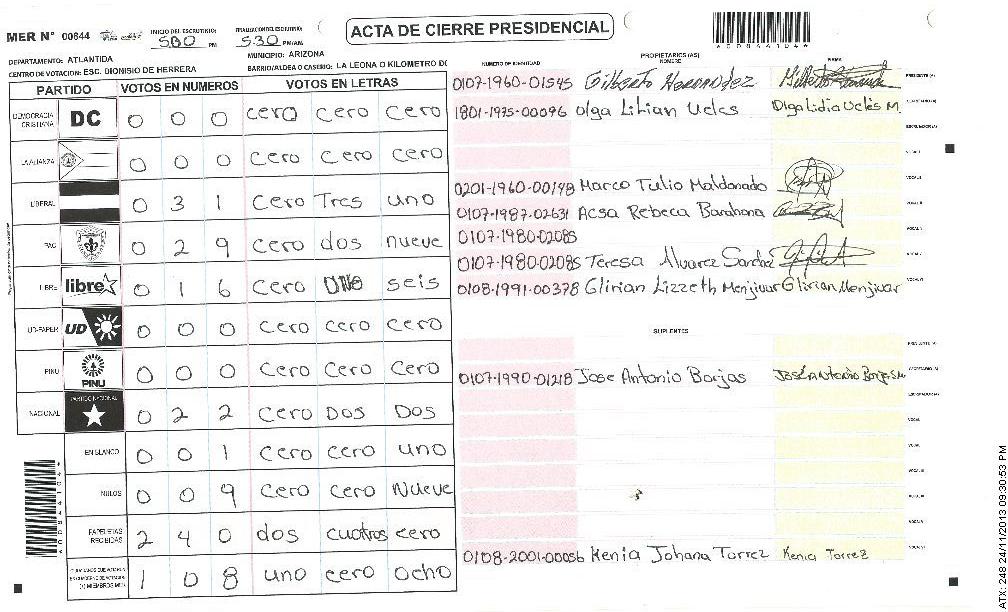 MER N° 00844
INICIO DEL ESCRUTINIO: 5:00 PM
FINALIZACION DEL ESCRUTINIO: 5:30 PM/AM
ACTA DE CIERRE PRESIDENCIAL
DEPARTAMENTO: ATLANTIDA
MUNICIPIO: ARIZONA
CENTRO DE VOTACION: ESC. DIONISIO DE HERRERA
BARRIO/ALDEA O CASERIO: LA LEONA O KILOMETRO DO
PARTIDO VOTOS EN NUMEROS VOTOS EN LETRAS
DEMOCRACIA CRISTIANA DC 0 0 0 cero cero cero
LA ALIANZA 0 0 0 cero cero cero
LIBERAL 0 3 1 cero Tres uno
PAC 0 2 9 cero dos nueve
LIBRE libre 0 1 6 cero uno seis
UD-FAPER UD 0 0 0 cero cero cero
PINU PINU 0 0 0 cero cero cero
NACIONAL PARTIDO NACIONAL 0 2 2 cero Dos Dos
EN BLANCO 0 0 1 cero cero uno
NULOS 0 0 9 cero cero Nueve
PAPELETAS RECIBIDAS 2 4 0 dos cuatros cero
1 0 8 uno cero ocho
NUMERO DE IDENTIDAD
PROPIETARIOS (AS)
NOMBRE
FIRMA
0107-1960-01545 Gilberto Hernandez
PRESIDENTE (A)
1801-1975-00096 Olga Lilian Ucles Olga Lidia Uclés M.
SECRETARIO (A)
ESCRUTADOR (A)
VOCAL I
0201-1960-00198 Marco Tulio Maldonado
VOCAL II
0107-1987-02631 Acsa Rebeca Barahona
0107-1980-02085
0107-1980-02085 Teresa Alvarez Sandoz
0108-1991-00378 Glirian Lizzeth Menjivar Glirian Menjivar
SUPLENTES
PRESIDENTE (A)
0107-1990-01218 Jose Antonio Borjas
SECRETARIO (A)
ESCRUTADOR (A)
0108-2001-00056 Kenia Johana Torrez Kenia Torrez
ATX: 248 24/11/2013 09:30:53 PM